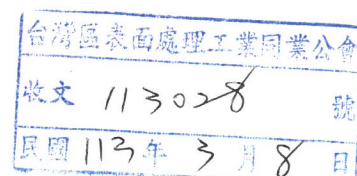 台灣區表面處理工業同業公會
收文 113028 號
民國 113 年 3 月 8 日